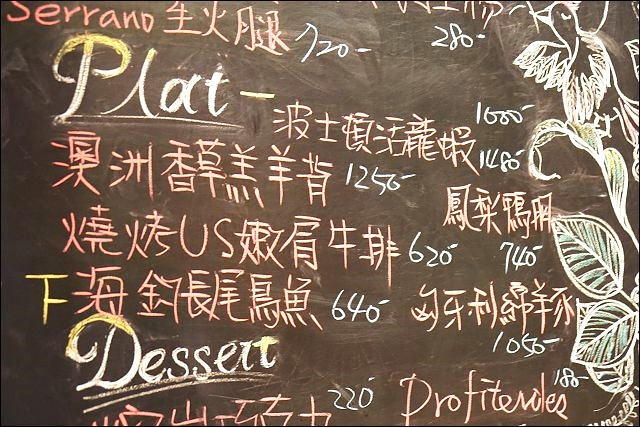 Serrano 生火腿 720-
280-
Plat
波士頓活龍蝦 1680- 1480-
澳洲香草羔羊背 1250-
鳳梨鴨胸 740-
燒烤US嫩肩牛排 620-
下海釣長尾鳥魚 640-
匈牙利綿羊豚 1050-
Dessert
220-
Profiteroles 188-